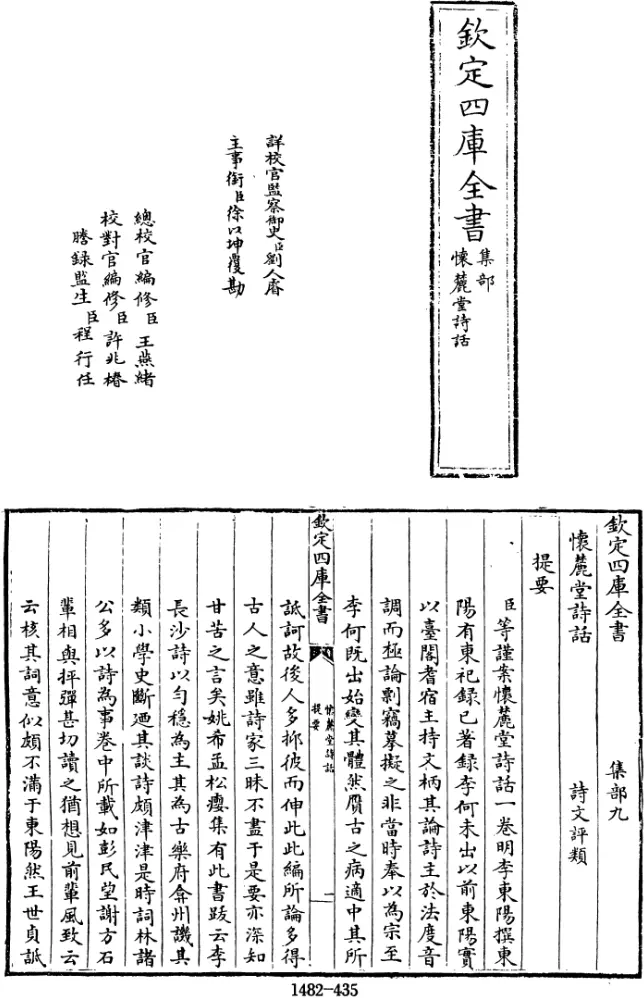 欽定四庫全書
集部
懷麓堂詩話
詳校官監察御史臣劉人睿
主事銜臣徐以坤覆勘
總校官編修臣王燕緒
校對官編修臣許兆椿
謄録監生臣程行任
欽定四庫全書 集部九
懷麓堂詩話 詩文評類
提要
臣等謹案懷麓堂詩話一卷明李東陽撰東
陽有東祀録已著録李何未出以前東陽實
以臺閣耆宿主持文柄其論詩主於法度音
調而極論剽竊摹擬之非當時奉以為宗至
李何既出始變其體然贋古之病適中其所
欽定四庫全書
懷麓堂詩話
提要
一
詆訶故後人多抑彼而伸此此編所論多得
古人之意雖詩家三昧不盡于是要亦深知
甘苦之言矣姚希孟松癭集有此書跋云李
長沙詩以匀穩為主其為古樂府弇州譏其
類小學史斷廼其談詩頗津津是時詞林諸
公多以詩為事卷中所載如彭民望謝方石
輩相與抨彈甚切讀之猶想見前輩風致云
云核其詞意似頗不滿于東陽然王世貞詆
1482-435